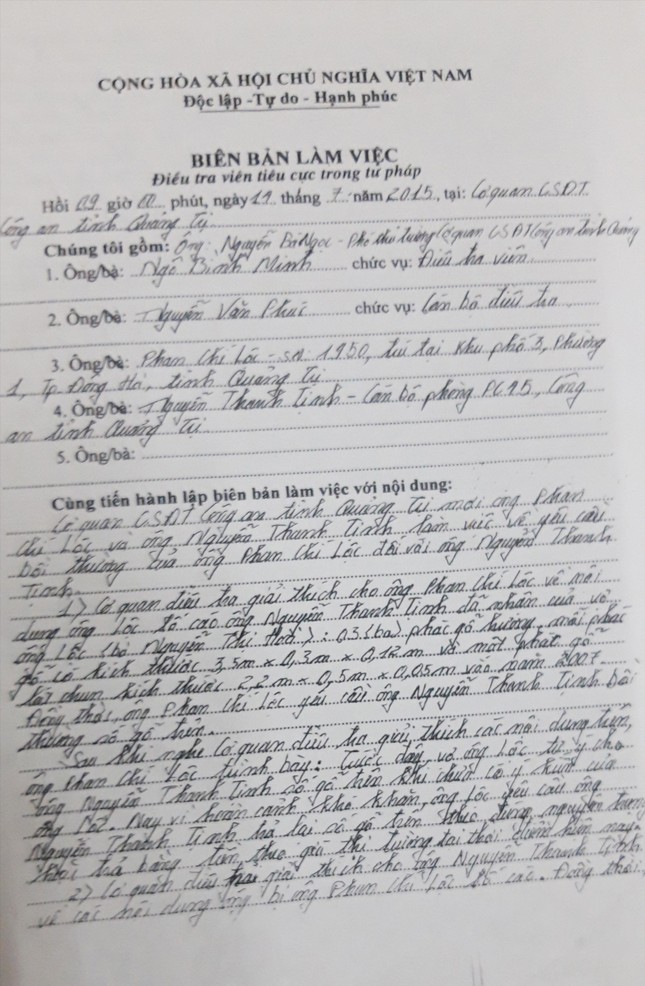 CỘNG HÒA XÃ HỘI CHỦ NGHĨA VIỆT NAM
Độc lập -Tự do - Hạnh phúc
BIÊN BẢN LÀM VIỆC
Điều tra viên tiêu cực trong tư pháp
Hồi 09 giờ 00 phút, ngày 19 tháng 7 năm 2015, tại: Cơ quan CSĐT
Công an tỉnh Quảng Trị
Chúng tôi gồm: Ông: Nguyễn Bá Ngọc - Phó thủ trưởng Cơ quan CSĐT Công an tỉnh Quảng
1. Ông/bà: Ngô Bình Minh chức vụ: Điều tra viên
2. Ông/bà: Nguyễn Văn Phúc chức vụ: Cán bộ điều tra
3. Ông/bà: Phan Chí Lốc - SN 1950, trú tại khu phố 3, Phường
1, Tp Đông Hà, tỉnh Quảng Trị
4. Ông/bà: Nguyễn Thanh Tịnh - Cán bộ phòng PC45, Công
an tỉnh Quảng Trị
5. Ông/bà:
Cùng tiến hành lập biên bản làm việc với nội dung:
Cơ quan CSĐT Công an tỉnh Quảng Trị mời ông Phan
Chí Lốc và ông Nguyễn Thanh Tịnh làm việc về yêu cầu
bồi thường của ông Phan Chí Lốc đối với ông Nguyễn Thanh
Tịnh.
1) Cơ quan điều tra giải thích cho ông Phan Chí Lốc về nội
dung ông Lốc tố cáo ông Nguyễn Thanh Tịnh đã nhận của vợ
ông Lốc (bà Nguyễn Thị): 03 (ba) phác gỗ hương, mỗi phác
gỗ có kích thước 3,5m x 0,3m x 0,12m và một phát gỗ
kích thước 2,2m x 0,5m x 0,05m vào năm 2007.
Đồng thời, ông Phan Chí Lốc yêu cầu ông Nguyễn Thanh Tịnh bồi
thường số gỗ trên.
Sau khi nghe Cơ quan điều tra giải thích các nội dung trên,
ông Phan Chí Lốc trình bày: Trước đây, vợ ông Lốc tự ý cho
ông Nguyễn Thanh Tịnh số gỗ trên khi chưa có ý kiến của
ông Lốc. Nay vì hoàn cảnh khó khăn, ông Lốc yêu cầu ông
Nguyễn Thanh Tịnh trả lại số gỗ trên theo đúng nguyên trạng
hoặc trả bằng tiền, theo giá thị trường tại thời điểm hiện nay.
2) Cơ quan điều tra giải thích cho ông Nguyễn Thanh Tịnh
về các nội dung ông bị ông Phan Chí Lốc tố cáo. Đồng thời,